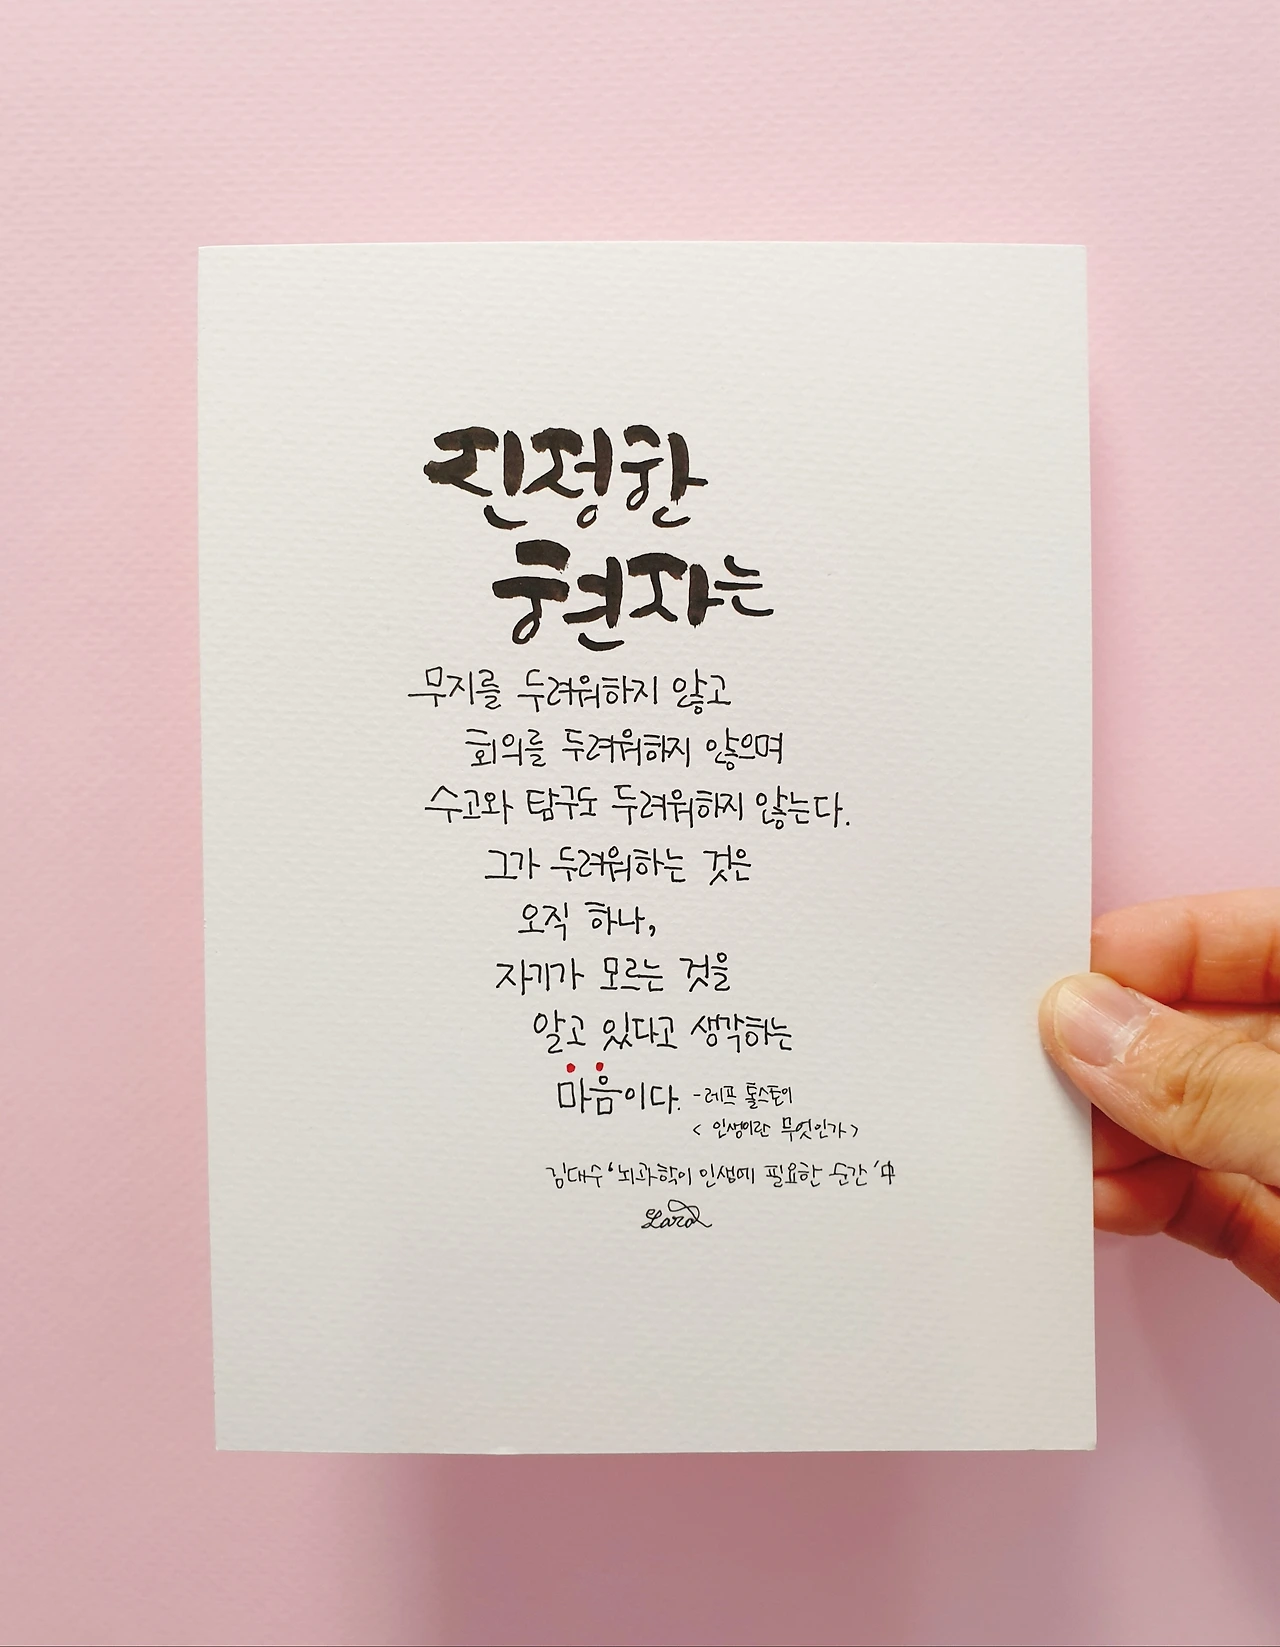 진정한
현자는
무지를 두려워하지 않고
회의를 두려워하지 않으며
수고와 탐구도 두려워하지 않는다.
그가 두려워하는 것은
오직 하나,
자기가 모르는 것을
알고 있다고 생각하는
마음이다. -레프 톨스토이
< 인생이란 무엇인가>
김대수 '뇌과학이 인생에 필요한 순간' 中
Lara